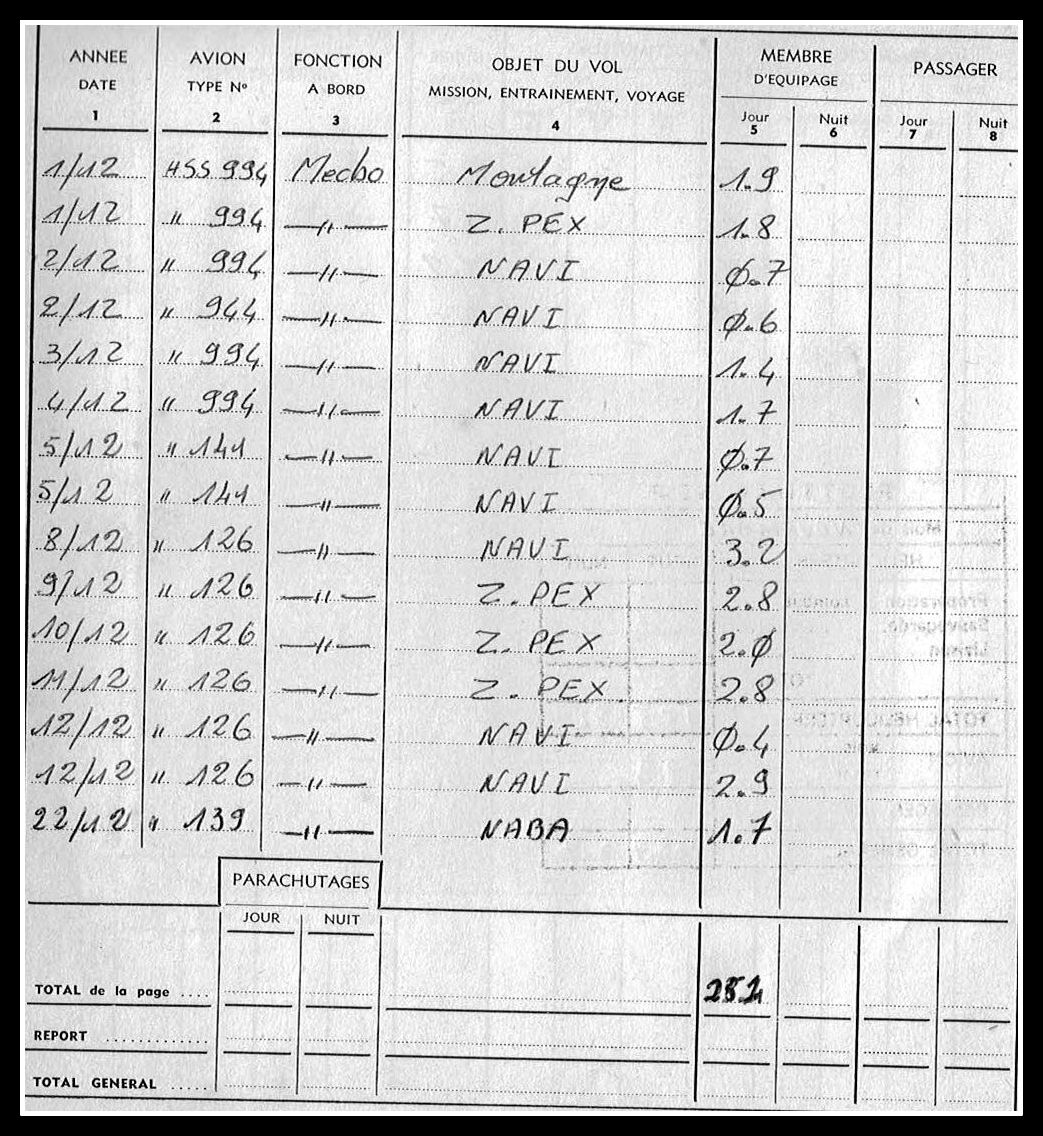 ANNEE AVION FONCTION OBJET DU VOL MEMBRE D'EQUIPAGE PASSAGER
DATE TYPE N° A BORD MISSION, ENTRAINEMENT, VOYAGE Jour Nuit Jour Nuit
1 2 3 4 5 6 7 8
1/12 HSS 994 Mecbo Montagne 1.9
1/12 " 994 —"— Z. PEX 1.8
2/12 " 994 —"— NAVI 0.7
2/12 " 944 —"— NAVI 0.6
3/12 " 994 —"— NAVI 1.4
4/12 " 994 —"— NAVI 1.7
5/12 " 141 —"— NAVI 0.7
5/12 " 141 —"— NAVI 0.5
8/12 " 126 —"— NAVI 3.2
9/12 " 126 —"— Z. PEX 2.8
10/12 " 126 —"— Z. PEX 2.0
11/12 " 126 —"— Z. PEX 2.8
12/12 " 126 —"— NAVI 0.4
12/12 " 126 —"— NAVI 2.9
22/12 " 139 —"— NABA 1.7
PARACHUTAGES
JOUR NUIT
TOTAL de la page ....
REPORT ............
TOTAL GENERAL .....